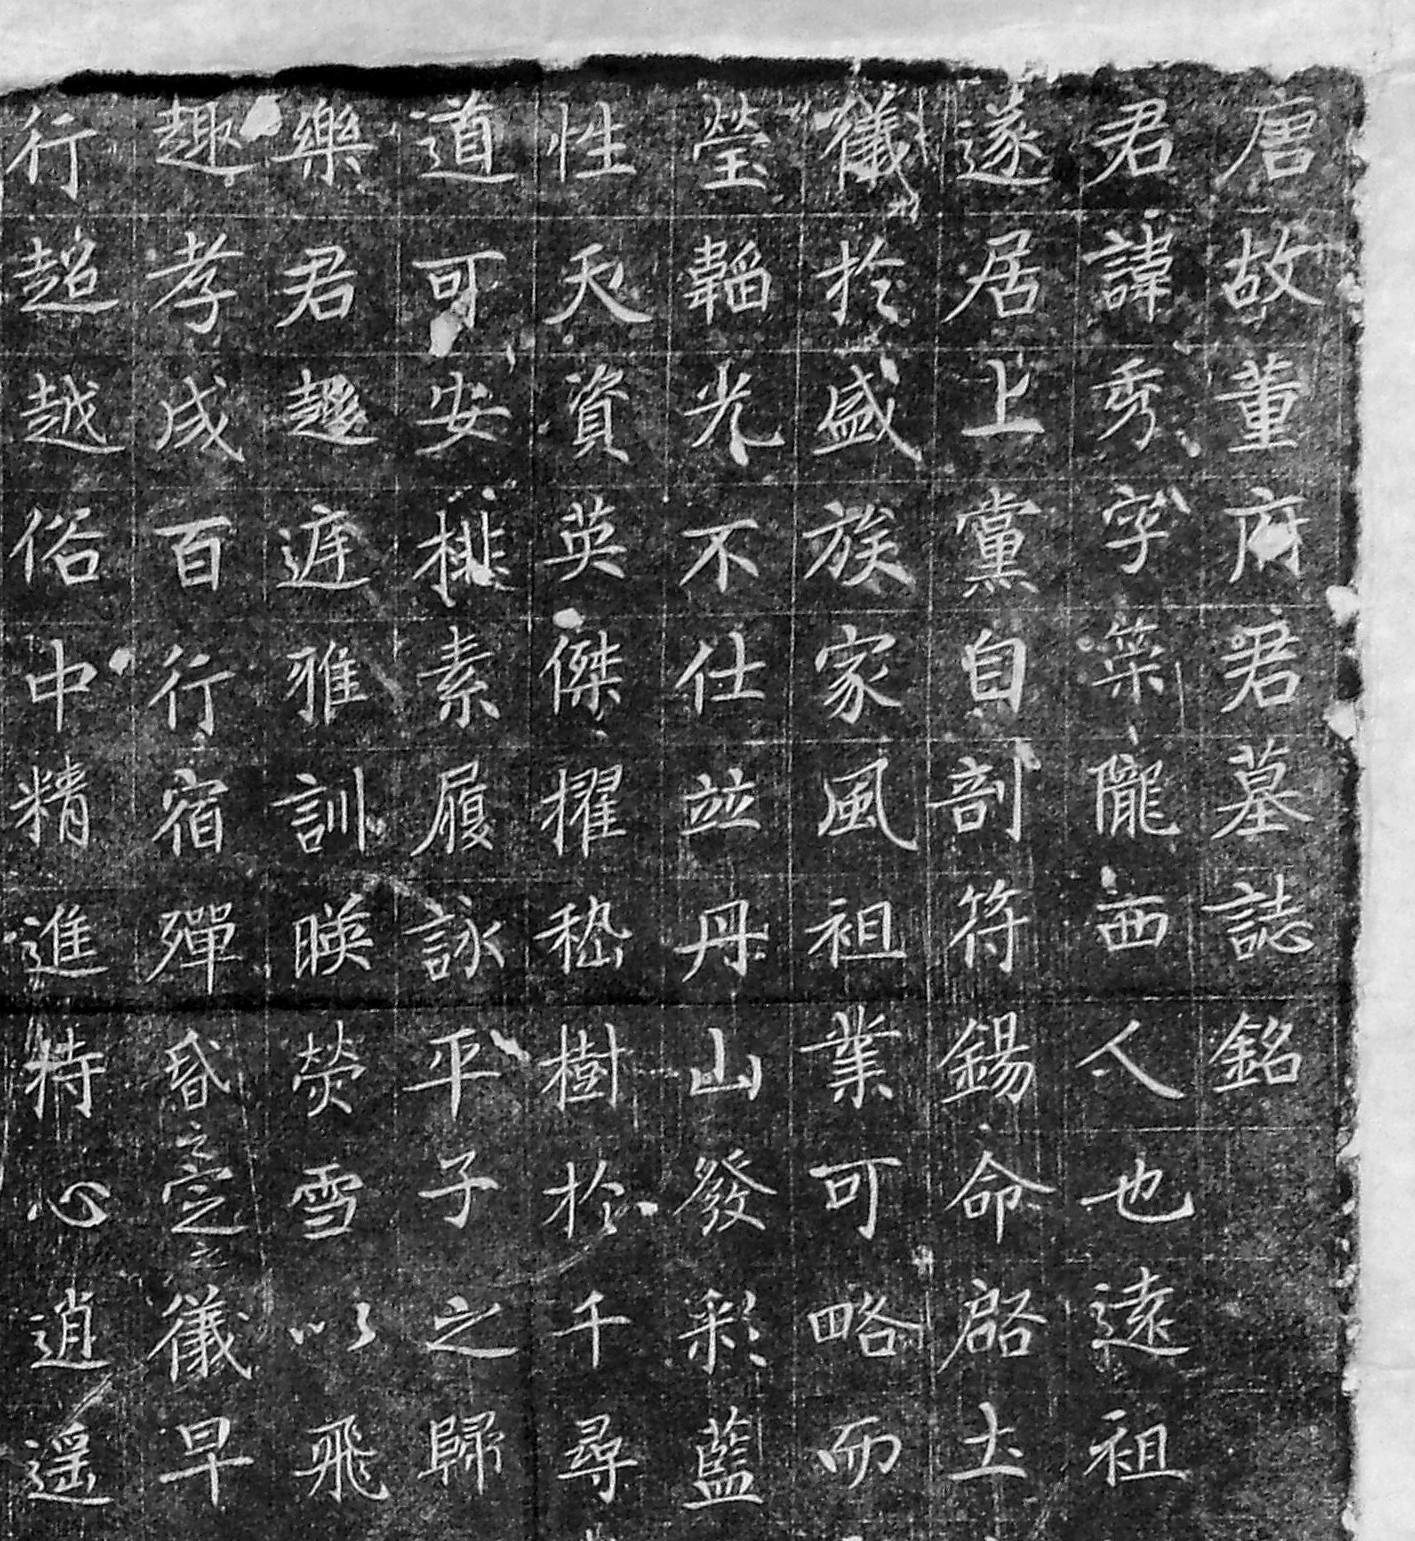 唐故董府君墓誌銘
君諱秀字榮隴西人也遠祖
遂居上黨自剖符錫命啓土
儀於盛族家風祖業可略而
瑩韜光不仕並丹山發彩藍
性天資英傑擢嵇樹於千尋
道可安排素履詠平子之歸
樂君趍庭雅訓暎熒雪以飛
趣孝成百行宿殫昏定之儀早
行超越俗中精進持心逍遥